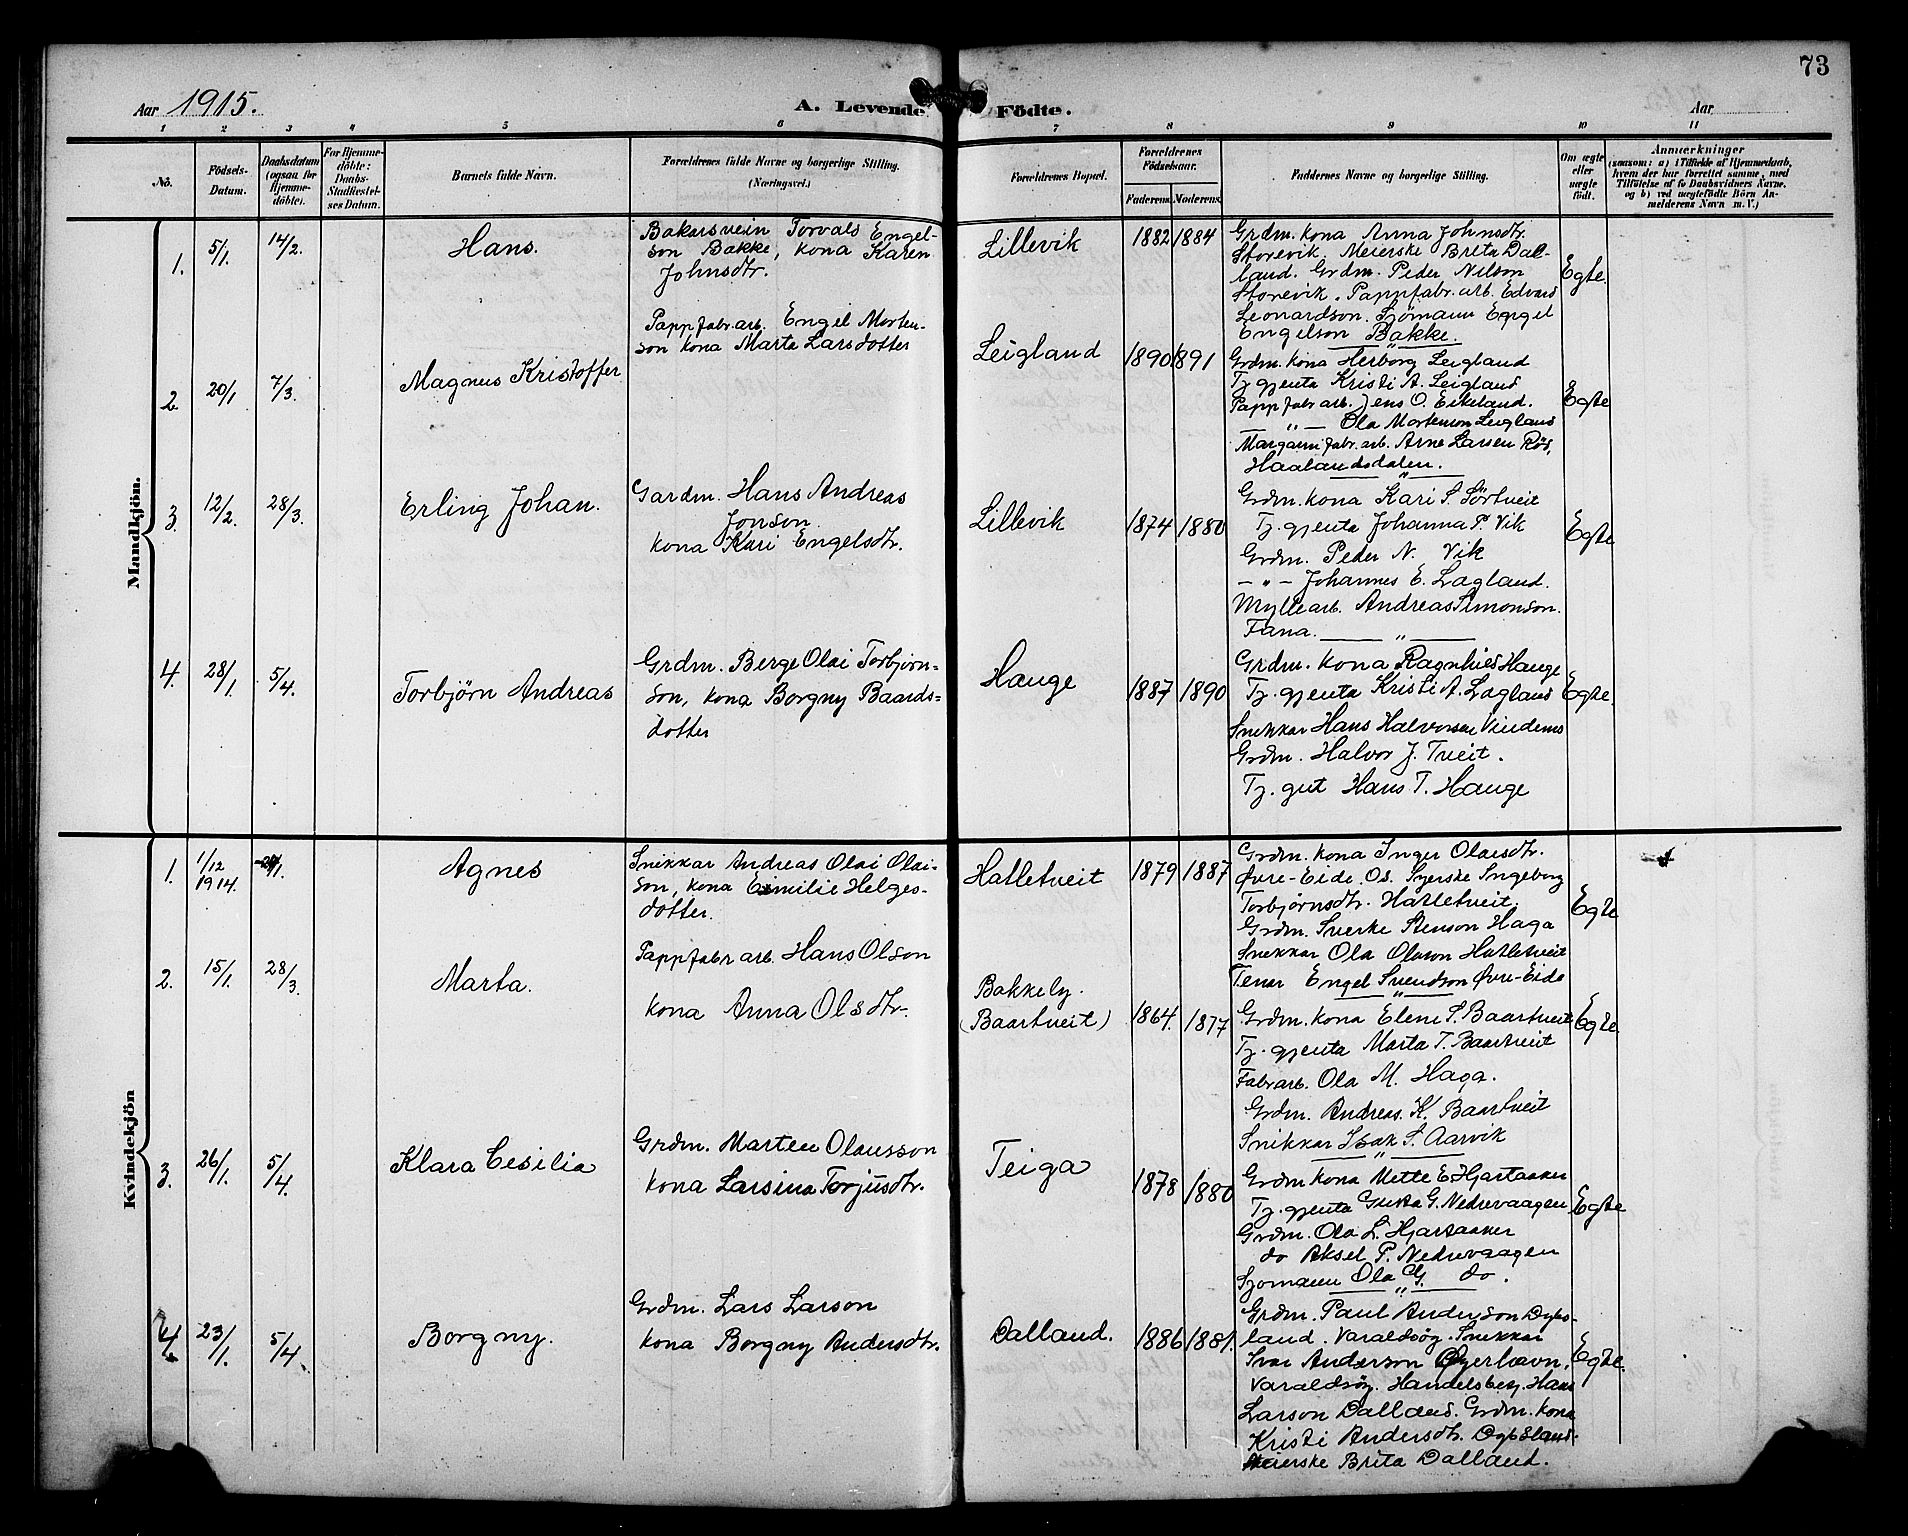 73
Aar 1915.
A. Levende Födte.
Aar
1 2 3 4 5 6 7 8 9 10 11
No.
Födsels-Datum.
Daabsdatum (ogsaa for Hjemme-döbte).
For Hjemme-döbte: Daabs-Stadfæstel-ses Datum.
Barnets fulde Navn.
Forældrenes fulde Navne og borgerlige Stilling.
(Næringsvei.)
Forældrenes Bopæl.
Forældrenes Födselsaar.
Faderens. Moderens.
Faddernes Navne og borgerlige Stilling.
Om ægte eller uægte födt.
Anmærkninger
(saasom: a) i Tilfælde af Hjemmedaab,
hvem der har forrettet samme, med
Tilföielse af to Daabsvidners Navne,
og b) ved uægtefödte Börn An-
melderens Navn m. V.)
Mandkjön.
1. 5/1. 14/2. Hans.
Bakarsvein Torvals Engel-
son Bakke, kona Karen
Johnsdtr.
Lillevik 1882 1884
Grdm. kona Anna Johnsdtr.
Storevik. Meierske Brita Dal-
land. Grdm. Peder Nilson
Storevik. Pappfabr. arb. Edvard
Leonardson. Sjömann Engel
Engelson Bakke.
Egte.
2. 20/1 7/3. Magnus Kristoffer
Pappfabr arb. Engel Morten-
son kona Marta Larsdotter
Leigland 1890 1891
Grdm. kona Herborg Leigland
Tj. gjenta Kristi A. Leigland
Pappfabr arb. Jens O. Eikeland.
— „ — Ola Mortenson Leigland
Margarinfabr. arb. Arne Larsen Rös,
Haalandsdalen.
Egte
3. 12/2. 28/3. Erling Johan.
Gardm. Hans Andreas
Jonson.
kona Kari Engelsdtr.
Lillevik 1874 1880
Grdm. kona Kari S. Sörtveit
Tj. gjenta Johanna P. Vik
Grdm. Peder N. Vik
— „ — Johannes E. Lagland.
Myllearb. Andreas Simonson.
Fana. — „ —
Egte
4. 28/1. 5/4. Torbjørn Andreas
Grdm. Berge Olai Torbjörn-
son, kona Borgny Baards-
dotter
Hauge 1887 1890
Grdm. kona Ragnhild Hauge
Tj. gjenta Kristi A. Lagland
Snikkar Hans Halvorsen
Grdm. Halvor J. Tveit.
Tj. gut Hans T. Hauge
Egte.
Kvindekjön
1. 1/12 1914. Agnes
Snikkar Andreas Olai Olai-
son, kona Emilie Helges-
dotter.
Hatletveit 1879 1887
Grdm. kona Inger Olaisdtr.
Øvre-Eide. Os. Syerske Ingeborg
Torbjørnsdtr. Hatletveit.
Grdm. Sverke Stenson Haga
Snikkar Ola Olason Hatletveit
Tenar Engel Svendson Øvre-Eide
Egte
2. 15/1. 28/3. Marta.
Pappfabr arb. Hans Olson
kona Anna Olsdtr.
Bakkely.
(Baartveit) 1864. 1877
Grdm. kona Elene S. Baartveit
Tj. gjenta Marta T. Baartveit
Fabrarb. Ola M. Haga.
Grdm. Andreas K. Baartveit
Snikkar Isak S. Aarvik
Egte.
3. 26/1. 5/4. Klara Cesilia
Grdm. Marten Olausson
kona Larsina Torjusdtr.
Teiga 1878 1880
Grdm kona Mette E Hjartaaker
Tj. gjenta Gurta G. Nedrevaagen
Grdm. Ola L. Hjartaaker
do Aksel P. Nedrevaagen
Sjomann Ola G. do.
Egte
4. 23/1. 5/4. Borgny.
Grdm. Lars Larson
kona Borgny Andersdtr.
Dalland. 1886 1881.
Grdm. Paul Anderson Dybs-
land. Varaldsöy. Snikkar
Ivar Anderson Øyerhavn,
Varaldsöy. Handelsbetj. Hans
Larson Dalland. Grdm. kona
Kristi Andersdtr. Dybsland.
Meierske Brita Dalland.
Egte.